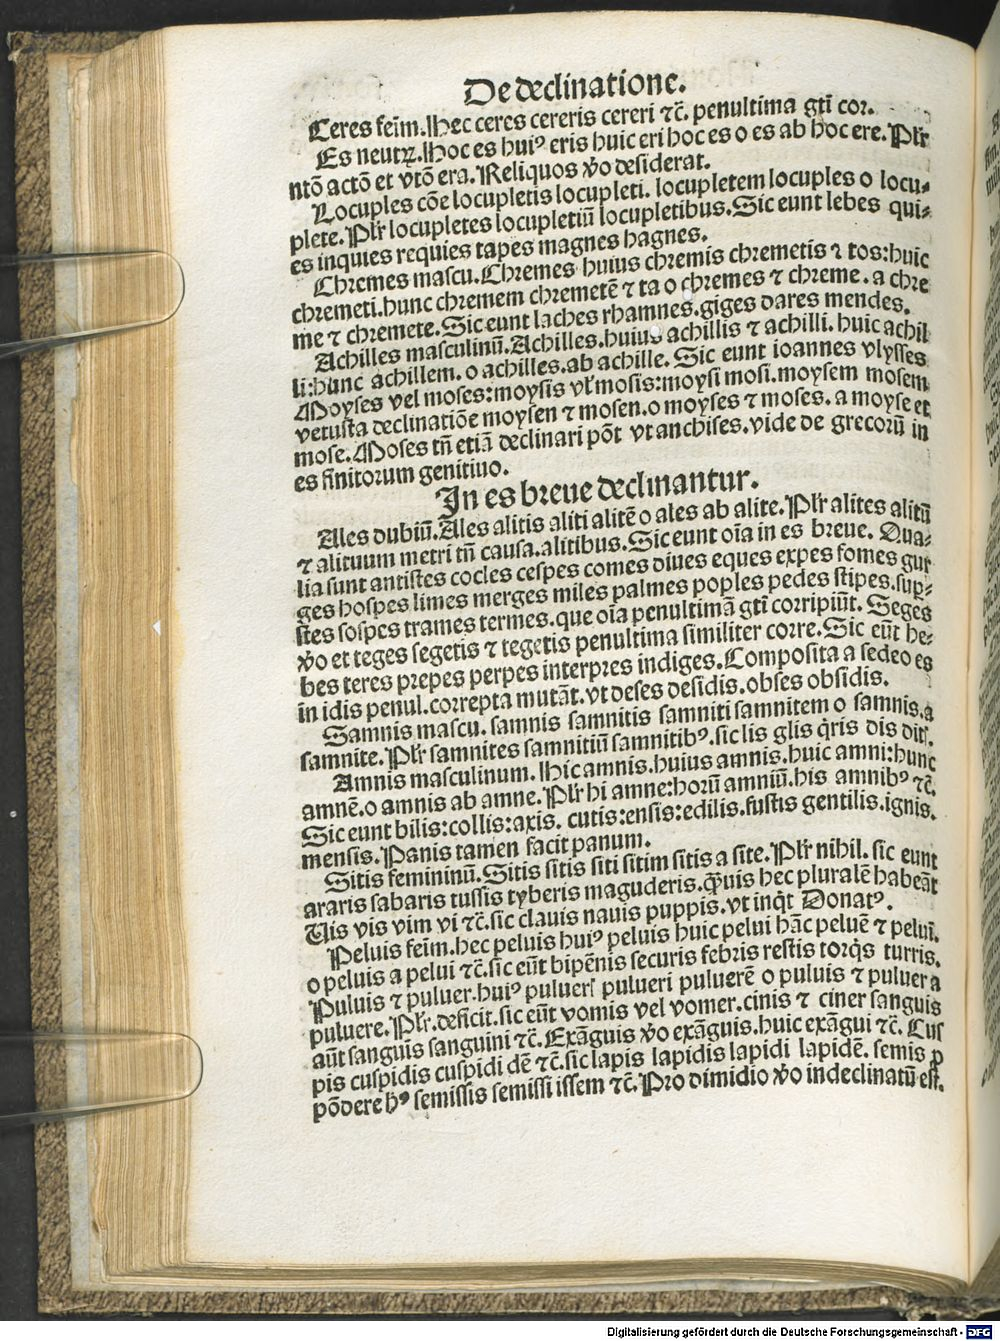 De declinatione.
Ceres feīm. Hec ceres cereris cereri ⁊c̄. penultima gtī cor.
Es neutꝝ. Hoc es huiꝰ eris huic eri hoc es o es ab hoc ere. Plr̄
ntō actō et vtō era. Reliquos v̄o desiderat.
Locuples cōe locupletis locupleti. locupletem locuples o locu⸗
plete. Plr̄ locupletes locupletiū locupletibus. Sic eunt lebes qui⸗
es inquies requies tapes magnes hagnes.
Chremes mascu. Chremes huius chremis chremetis ⁊ tos: huic
chremeti. hunc chremem chremetē ⁊ ta o chremes ⁊ chreme. a chre
me ⁊ chremete. Sic eunt laches rhamnes. giges dares mendes.
Achilles masculinū. Achilles. huius achillis ⁊ achilli. huic achil
li: hunc achillem. o achilles. ab achille. Sic eunt ioannes vlysses
Moyses vel moses: moysis vl̄ mosis: moysi mosi. moysem mosem
vetusta declinatiōe moysen ⁊ mosen. o moyses ⁊ moses. a moyse et
mose. Moses tn̄ etiā declinari pōt vt anchises. vide de grecorū in
es finitorum genitiuo.
In es breue declinantur.
Ales dubiū. Ales alitis aliti alitē o ales ab alite. Plr̄ alites alitū
⁊ alituum metri tn̄ causa. alitibus. Sic eunt oīa in es breue. Qua⸗
lia sunt antistes cocles cespes comes diues eques expes fomes gur
ges hospes limes merges miles palmes poples pedes stipes. sup̱⸗
stes sospes trames termes. que oīa penultimā gtī corripiūt. Seges
v̄o et teges segetis ⁊ tegetis penultima similiter corre. Sic eūt he⸗
bes teres prepes perpes interpres indiges. Composita a sedeo es
in idis penul. correpta mutāt. vt deses desidis. obses obsidis.
Samnis mascu. samnis samnitis samniti samnitem o samnis. a
samnite. Plr̄ samnites samnitiū samnitibꝰ. sic lis glis q̇ris dis dit̄.
Amnis masculinum. Hic amnis. huius amnis. huic amni: hunc
amnē. o amnis ab amne. Plr̄ hi amne: horū amniū. his amnibꝰ ⁊c̄.
Sic eunt bilis: collis: axis. cutis: ensis: edilis. fustis gentilis. ignis.
mensis. Panis tamen facit panum.
Sitis femininū. Sitis sitis siti sitim sitis a site. Plr̄ nihil. sic eunt
araris sabaris tussis tyberis maguderis. Q̄uis hec pluralē habeāt
Uis vis vim vi ⁊c̄. sic clauis nauis puppis. vt inq̇t Donatꝰ.
Peluis feīm. hec peluis huiꝰ peluis huic pelui hāc peluē ⁊ peluī.
o peluis a pelui ⁊c̄. sic eūt bipēnis securis febris restis torq̇s turris.
Puluis ⁊ puluer. huiꝰ pulueris pulueri puluerē o puluis ⁊ puluer a
puluere. Plr̄. deficit. sic eūt vomis vel vomer. cinis ⁊ ciner sanguis
aūt sanguis sanguini ⁊c̄. Exāguis v̄o exāguis. huic exāgui ⁊c̄. Cus
pis cuspidis cuspidi dē ⁊c̄. sic lapis lapidis lapidi lapidē. semis ꝓ
pōdere hꝰ semissis semissi issem ⁊c̄. Pro dimidio v̄o indeclinatū est.
Digitalisierung gefördert durch die Deutsche Forschungsgemeinschaft - DFG